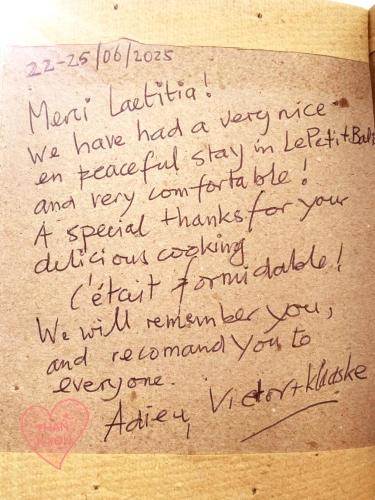 22-25/06/2025
Merci Laetitia!
We have had a very nice
en peaceful stay in LePetitBal
and very comfortable!
A special thanks for your
delicious cooking
C'était formidable!
We will remember you,
and recomand you to
everyone.
Adieu, Victor + Klaaske
THANK YOU